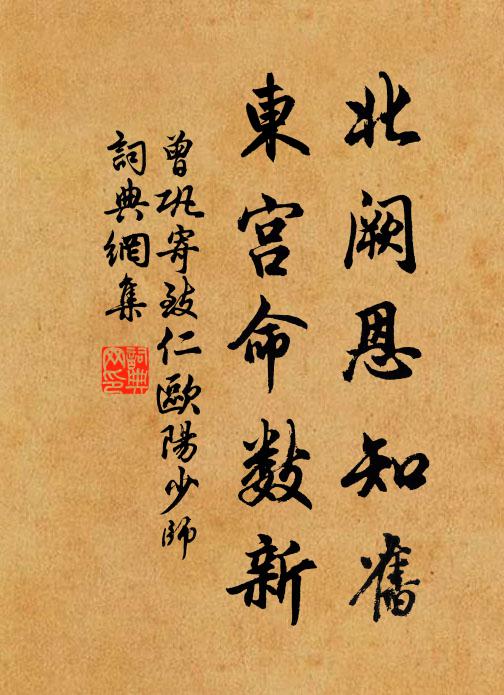 北阙恩知舊
東宮命數新
曾巩寄致仁歐陽少師
詞典網集
詞典网印